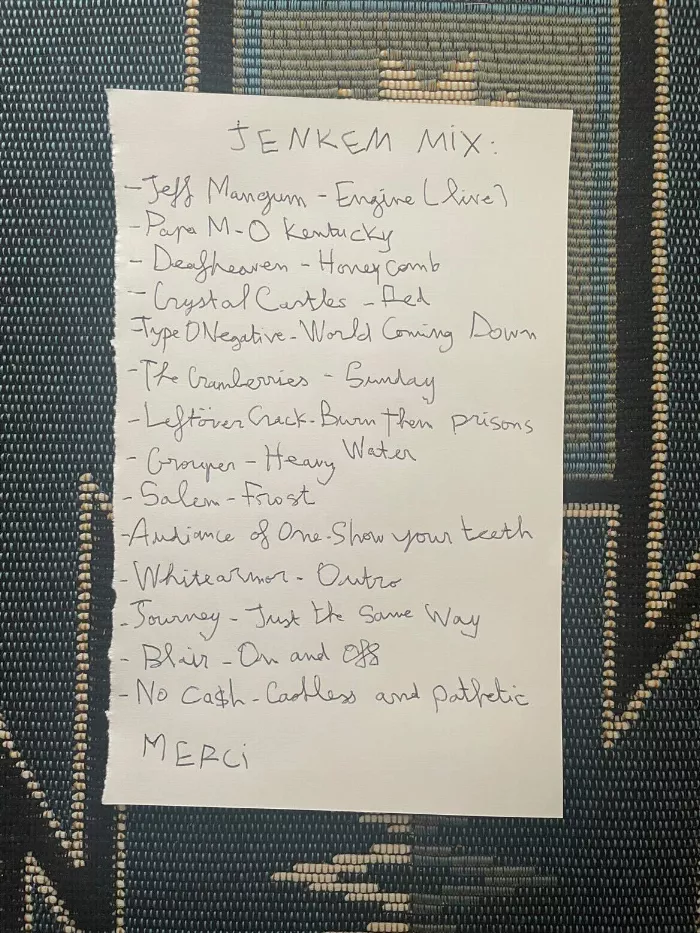 JENKEM MIX:
- Jeff Mangum - Engine (live)
- Papa M - O Kentucky
- Deafheaven - Honeycomb
- Crystal Castles - Red
- Type O Negative - World Coming Down
- The Cranberries - Sunday
- Leftöver Crack - Burn them prisons
- Grouper - Heavy Water
- Salem - Frost
- Audiance of One - Show your teeth
- Whitearmor - Outro
- Journey - Just the Same Way
- Blair - On and Off
- No Ca$h - Cashless and pathetic
MERCi